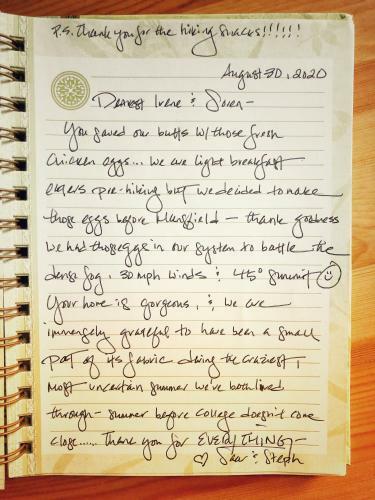 P.S. Thank you for the hiking snacks!!!!!!
August 30, 2020
Dearest Irene & Soren –
You saved our butts w/ those fresh
chicken eggs... We are light breakfast
eaters pre-hiking but we decided to make
those eggs before Mansfield – thank goodness
we had those eggs in our system to battle the
dense fog, 30 mph winds & 45° summit ☺
Your home is gorgeous, & we are
immensely grateful to have been a small
part of its fabric during the craziest,
most uncertain summer we've both lived
through – summer before college doesn't come
close...... Thank you for EVERYTHING –
♡ & Steph